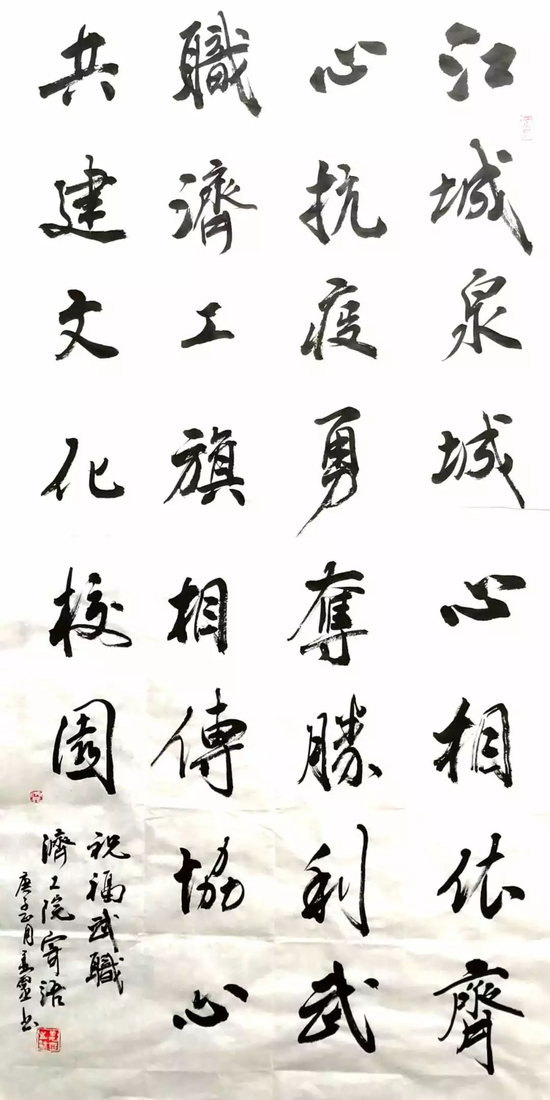 江城泉城心相依齊
心抗疫勇奪勝利武
職濟工旗相傳協心
共建文化校園
祝福武職
濟工院寄语
庚子正月
书